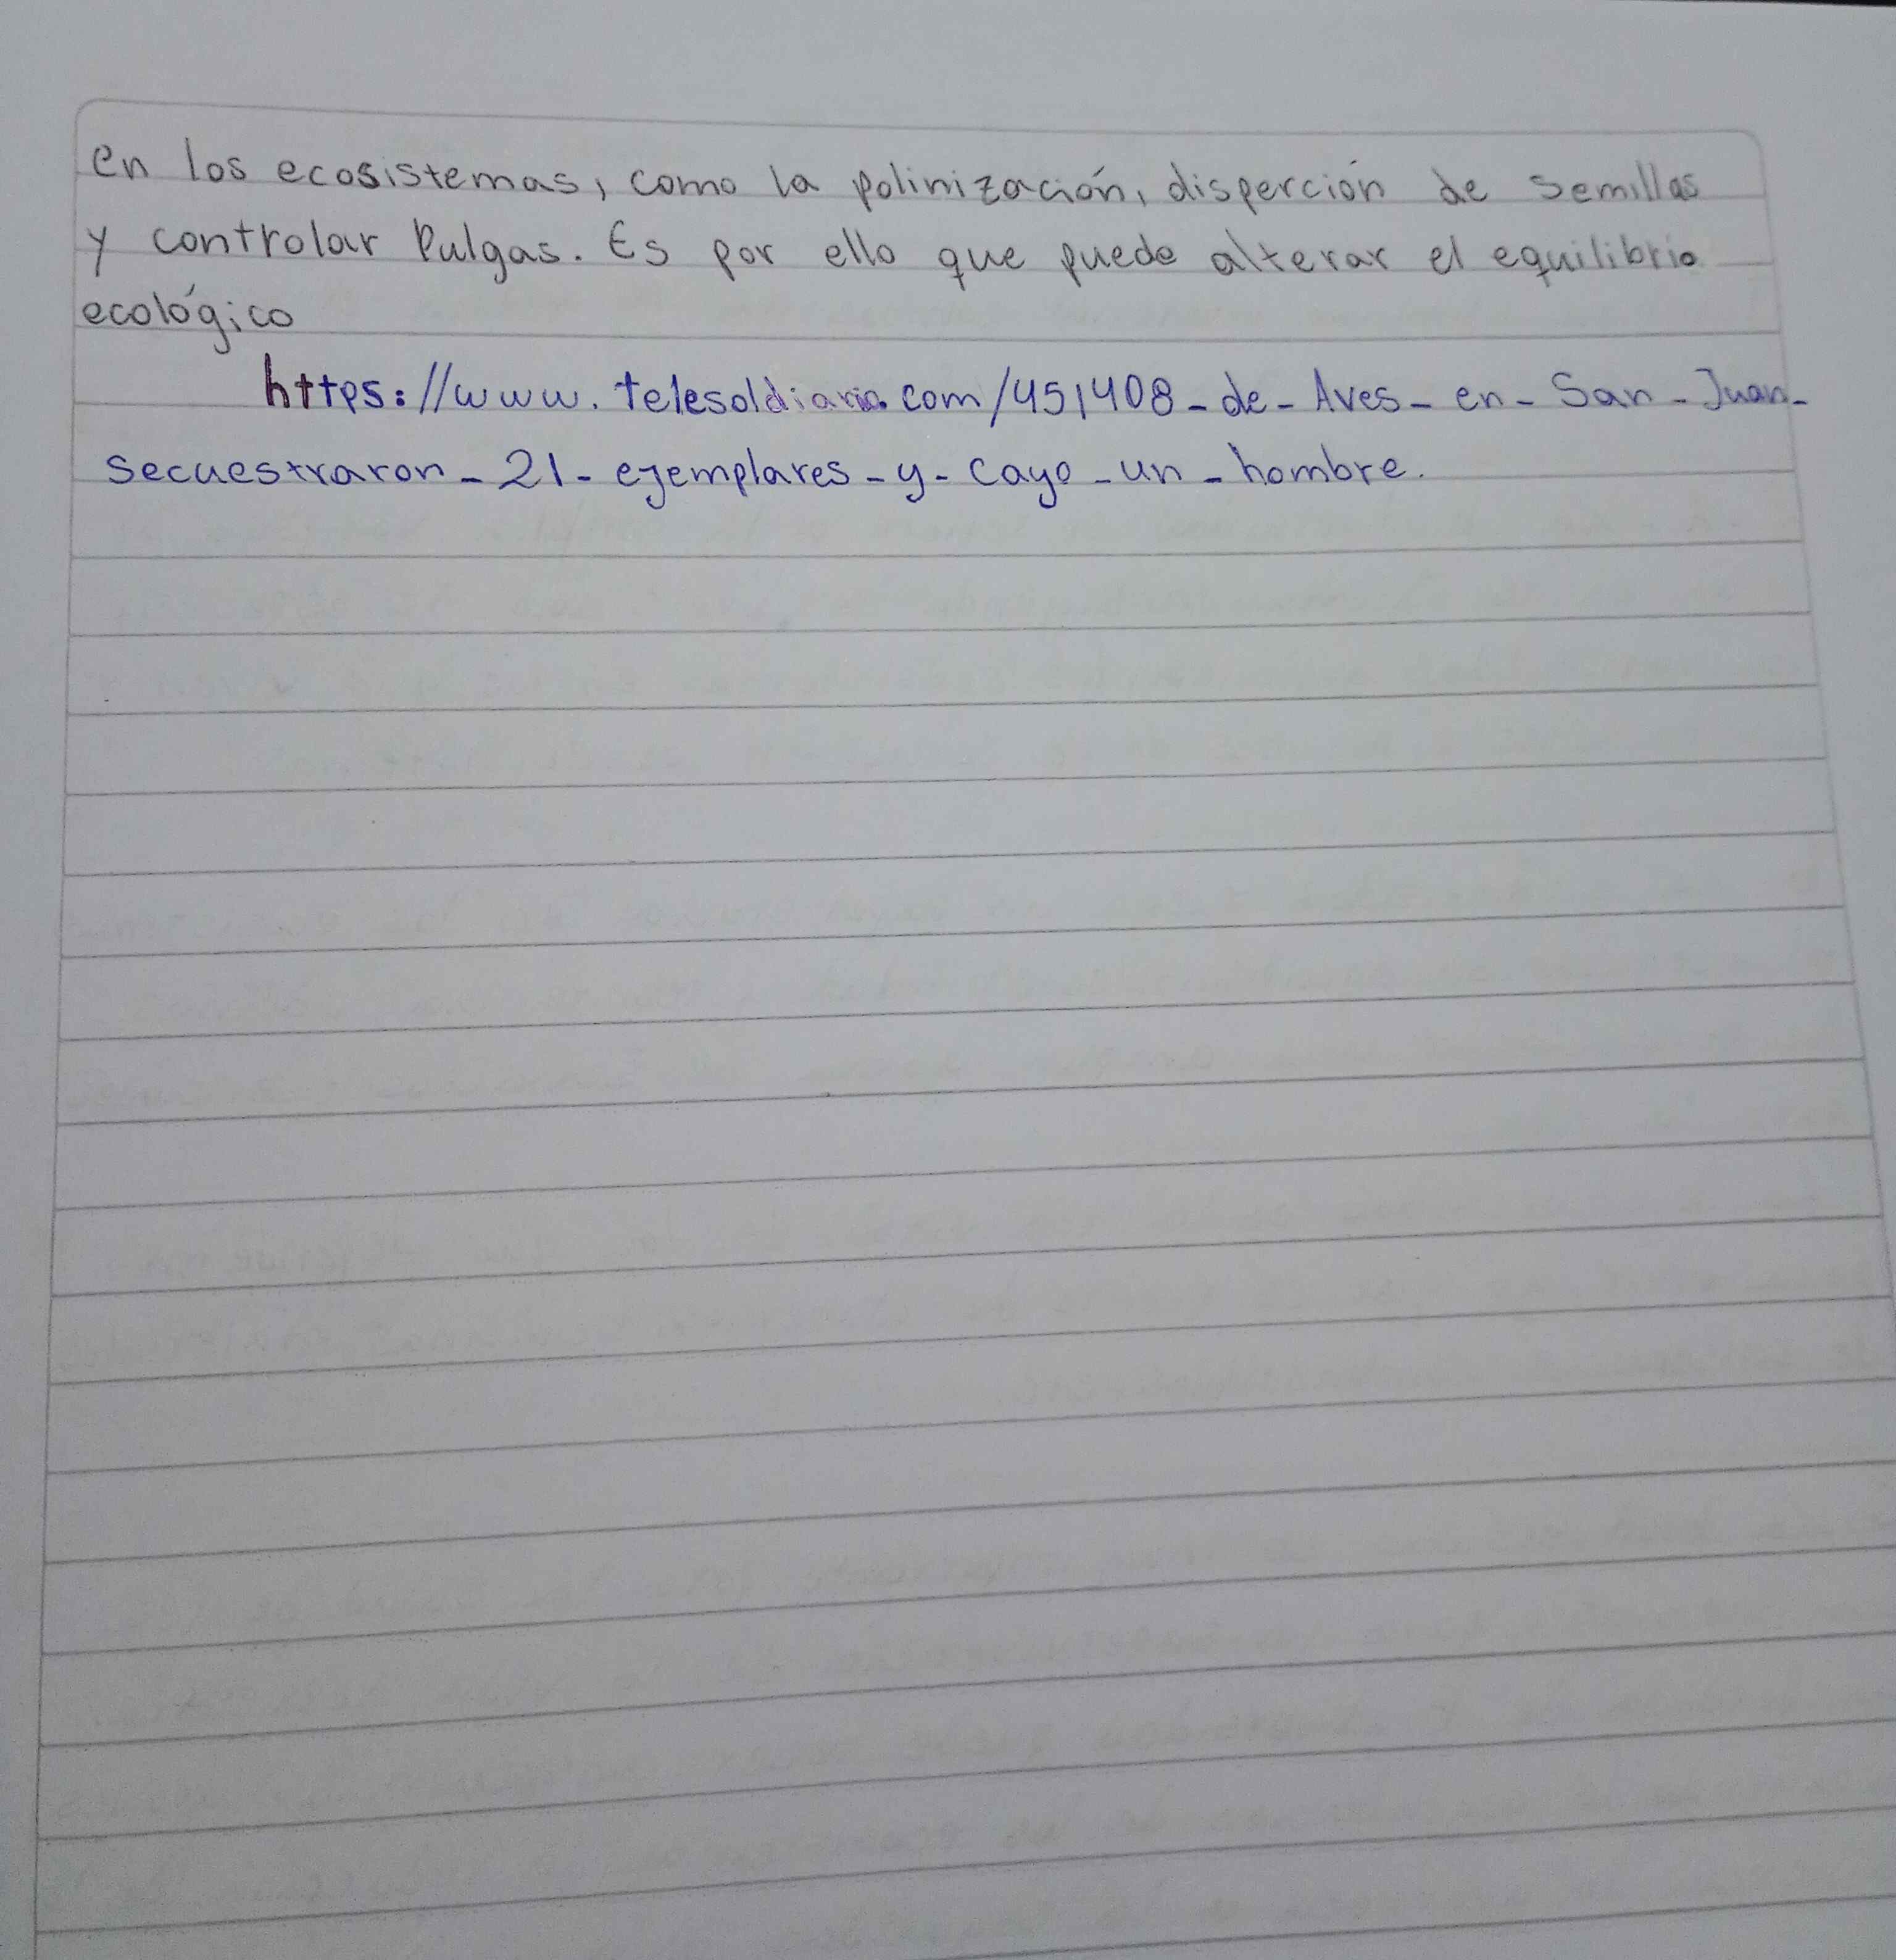 en los ecosistemas, como la polinización, disperción de semillas
y controlar Pulgas. Es por ello que puede alterar el equilibrio
ecológico
https://www.telesoldiario.com/451408-de-Aves-en-San-Juan-
secuestraron-21-ejemplares-y-cayo-un-hombre.